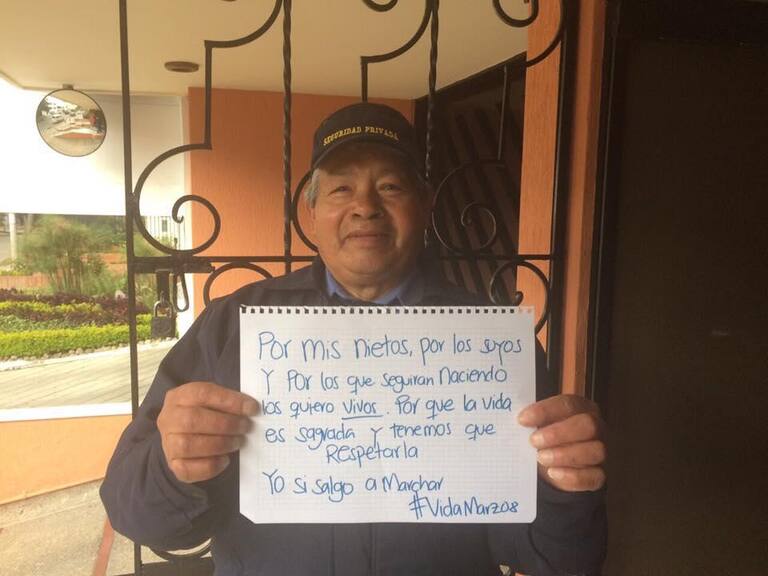 SEGURIDAD PRIVADA
Por mis nietos, por los suyos
Y Por los que seguiran Naciendo
los quiero vivos. Por que la vida
es sagrada y tenemos que
Respetarla
Yo si salgo a Marchar
#VidaMarzo8